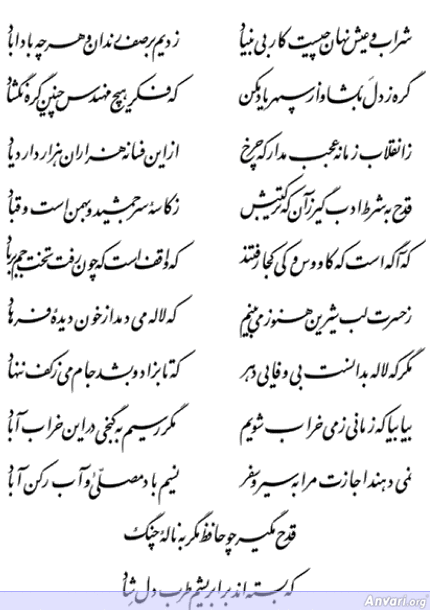 شراب و عیش نهان چیست کار بی بنیاد    زدیم بر صف رندان و هر چه بادا باد
گره ز دل بگشا و از سپهر یاد مکن    که فکر هیچ مهندس چنین گره نگشاد
ز انقلاب زمانه عجب مدار که چرخ    از این فسانه هزاران هزار دارد یاد
قدح به شرط ادب گیر زآن که ترکیبش    ز کاسهٔ سر جمشید و بهمن است و قباد
که آگه است که کاووس و کی کجا رفتند    که واقف است که چون رفت تخت جم بر باد
ز حسرت لب شیرین هنوز می بینم    که لاله می دمد از خون دیدهٔ فرهاد
مگر که لاله بدانست بی وفایی دهر    که تا بزاد و بشد جام می ز کف ننهاد
بیا بیا که زمانی ز می خراب شویم    مگر رسیم به گنجی در این خراب آباد
نمی دهند اجازت مرا به سیر و سفر    نسیم باد مصلّی و آب رکن آباد
قدح مگیر چو حافظ مگر به نالهٔ چنگ
که بسته اند بر ابریشم طرب دل شاد
Anvari.org